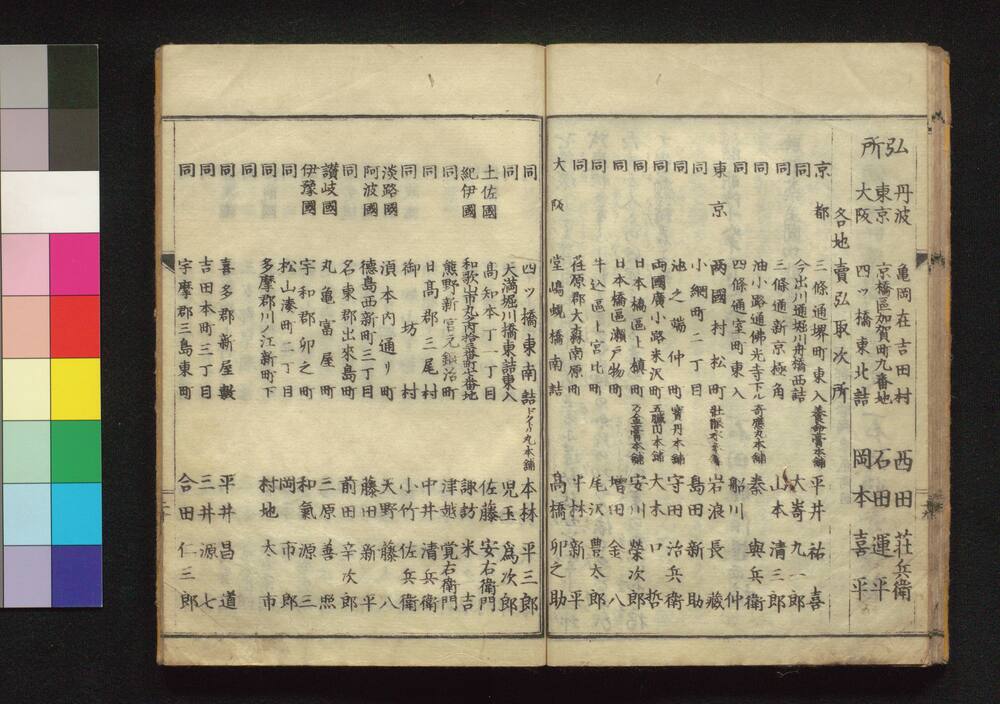 弘所
丹波 亀岡在吉田村 西田荘兵衛
東京 京橋區加賀町九番地 石田運平
大阪 四ッ橋東北詰 岡本喜平
各地賣弘取次所
京都 三條通堺町東入 養命膏本舗 平井祐喜
同 今出川通堀川舟橋西詰 大嵜九一郎
同 三條通新京極角 山本清三郎
同 油小路通佛光寺下ル 奇應丸本舗 秦與兵衛
同 四條通室町東入 船川仲
東京 两國村松町 岩浪長藏
同 小網町二丁目 島田新助
同 池之端仲町 寳丹本舗 守田治兵衛
同 両國廣小路米沢町 五臓円本舗 大木口哲
同 日本橋區上槙町 万金膏本舗 安川榮次郎
同 日本橋區瀬戸物町 増田金八
同 牛込區上宮比町 尾沢豊太郎
同 荏原郡大森南原町 牛林新平
大阪 堂嶋蜆橋南詰 髙橋卯之助
同 四ッ橋東南詰 ドクトリ丸本舗 本林平三郎
同 天満堀川橋東詰東入 児玉為次郎
土佐國 高知本丁一丁目 佐藤安右衛門
紀伊國 和歌山市丸ノ内拾番町七番地 諏訪米吉
同 熊野新宮元鍛冶町 津越覚右衛門
同 日髙郡三尾村 中井清兵衛
同 御坊村 小竹佐兵衛
淡路國 須本内通リ町 天野藤八
阿波國 徳島西新町三丁目 藤田新平
同 名東郡出來島町 前田辛次郎
讃岐國 丸亀富屋町 三原善照
伊豫國 宇和郡卯之町 和氣源三
同 松山湊町二丁目 岡市郎
同 多摩郡川ノ江新町下 村地太市
同 喜多郡新屋敷 平井昌道
同 吉田本町三丁目 三井源七
同 宇摩郡三島東町 合田仁三郎